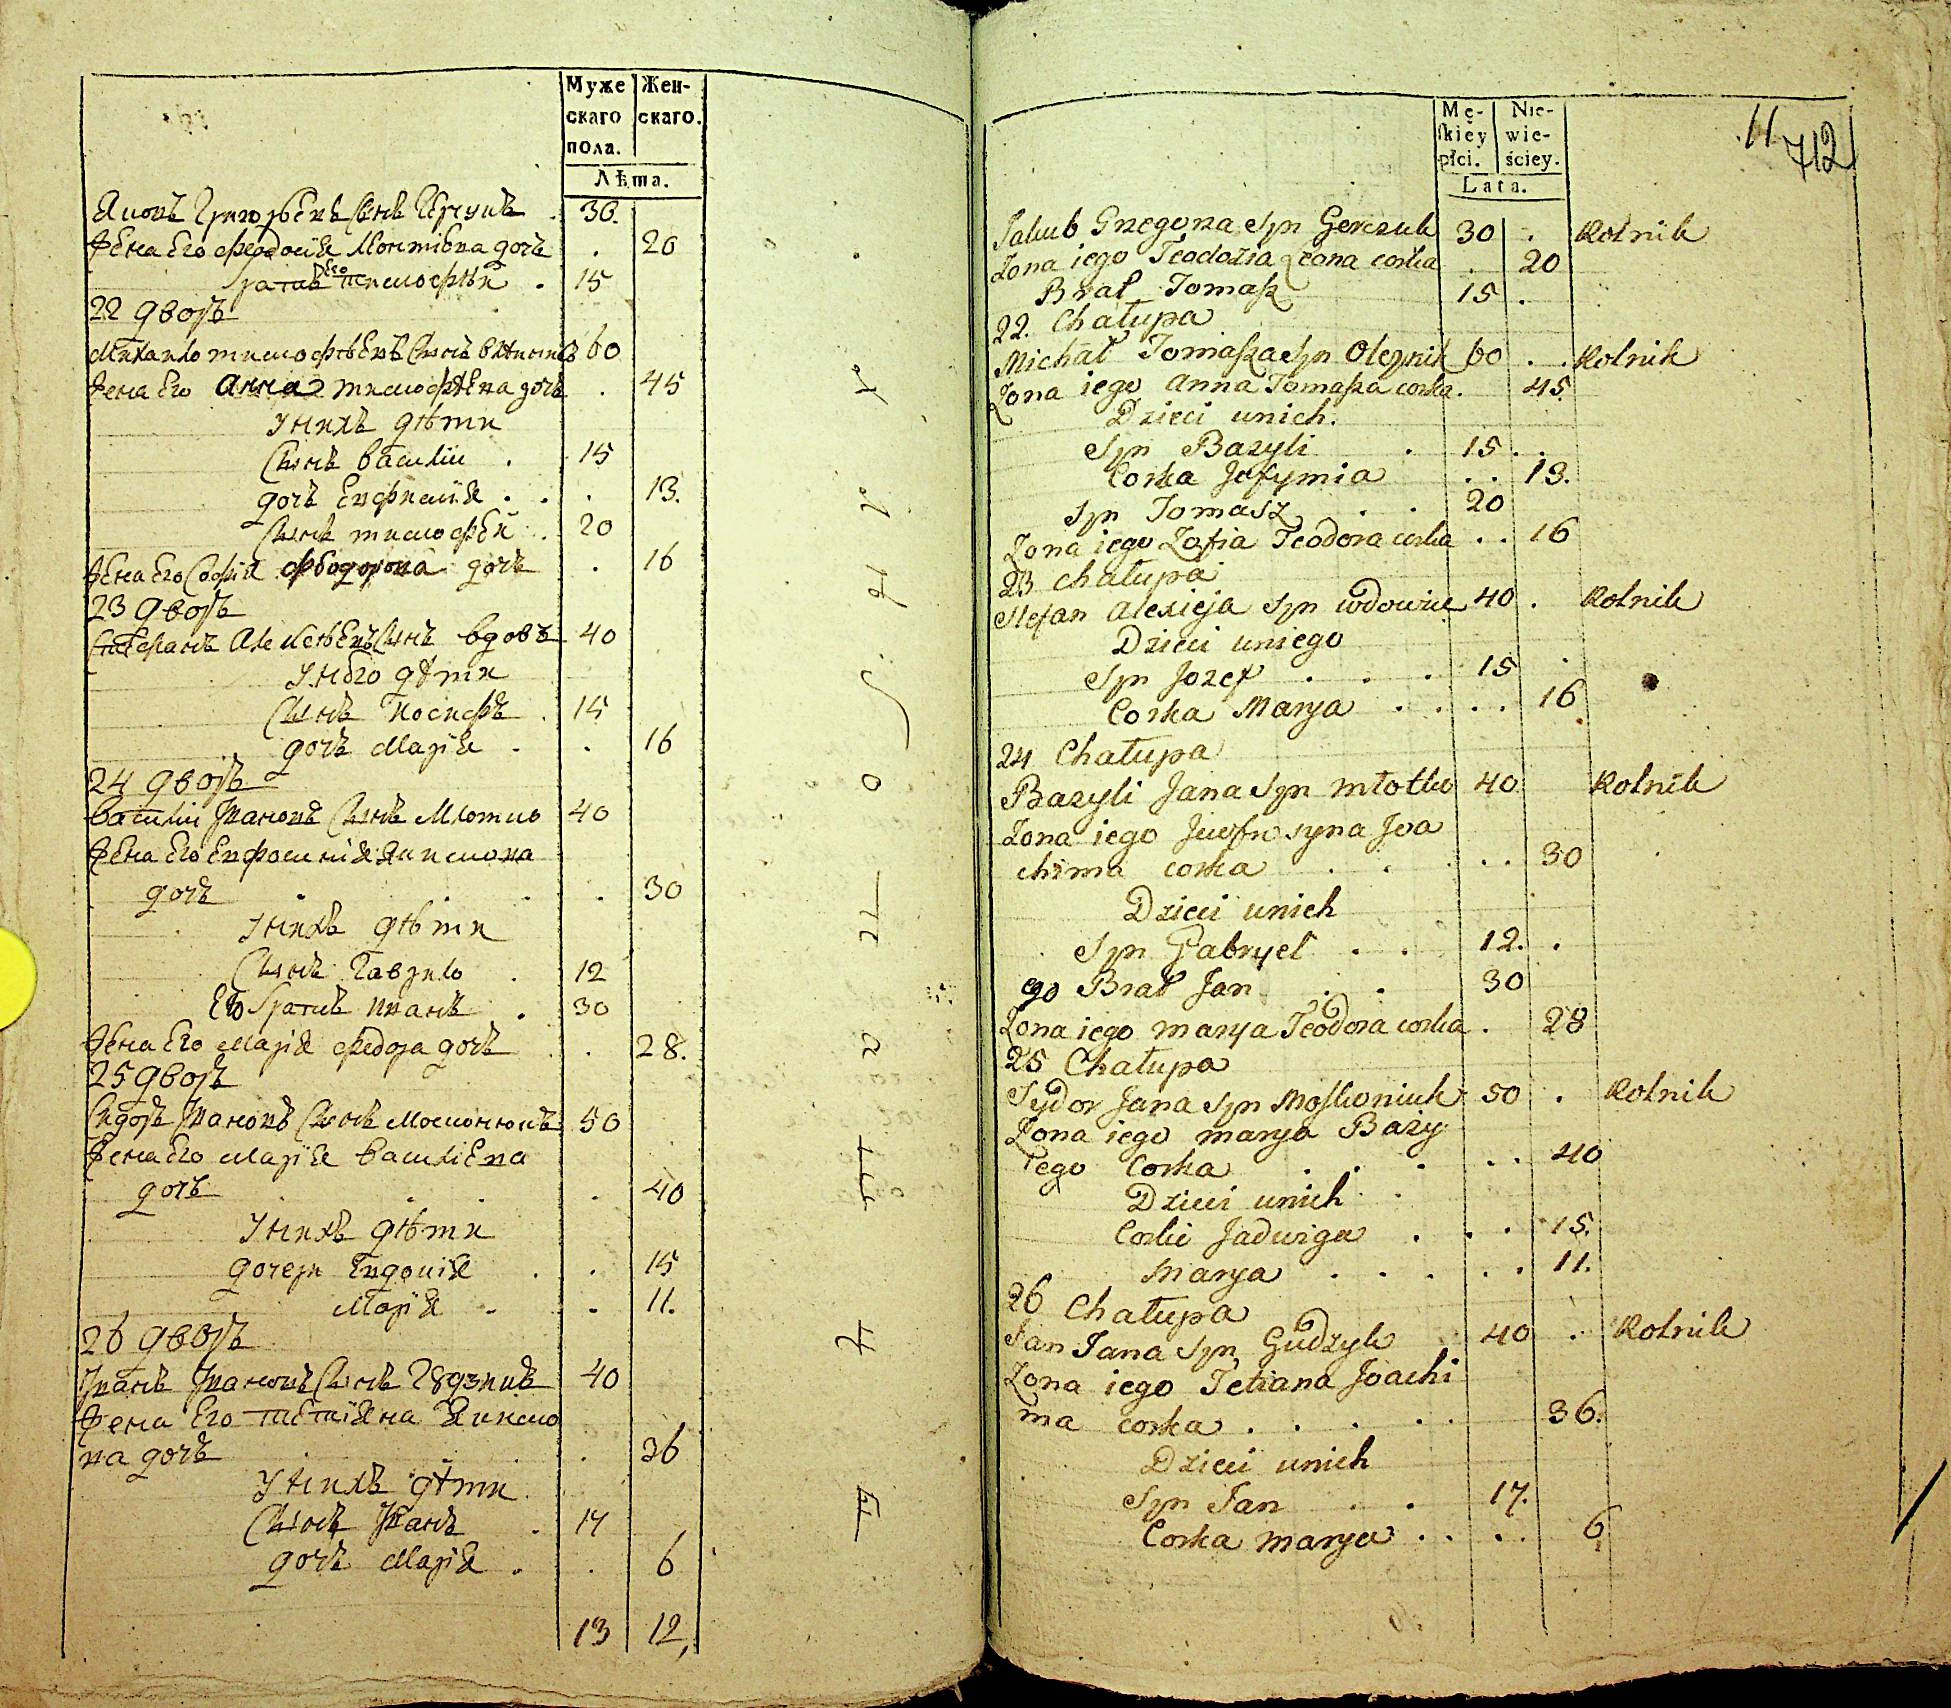 Муже Жен-
скаго скаго.
пола.
Лѣта.
Яковъ Григорьевъ Сынъ Герчукъ . 30.
Жена Его Феодосия Леонтіева дочь . 20
братъ Его тимофѣй . 15
22 дворъ
Михаило тимофѣевъ Сынъ 60
Жена Его Анна тимофѣева дочь . 45
У нихъ дѣти
Сынъ Василіи . 15
дочь Евфимия . . . 13.
Сынъ тимофей . 20
Жена Его Софія Феодорова дочь . 16
23 дворъ
Стефанъ Алексѣевъ Сынъ вдовъ 40
У него дѣти
Сынъ Иосифъ . 15
дочь Мария . . 16
24 дворъ
Василіи Ивановъ Сынъ Млотко 40
Жена Его Евфросиния Якимова
дочь . . . 30
У нихъ дѣти
Сынъ Гаврило . 12
Его братъ Иванъ . 30
Жена Его Мария Федора дочь . . 28.
25 дворъ
Сидоръ Ивановъ Сынъ Москонюкъ 50
Жена Его Мария Василіева
дочь . . . . 40
У нихъ дѣти
дочери Евдокия . . 15
Мария . . 11.
26 дворъ
Иванъ Ивановъ Сынъ Гудзикъ 40
Жена Его татияна Якимо
ва дочь . . 36
У нихъ дѣти
Сынъ Иванъ . 17
дочь Мария . . 6
13 12,
11 712
Mę- Nie-
skiey wie-
płci. ściey.
Lata.
Jakub Grzegorza Syn Gerczuk 30 . Rolnik
Zona iego Teodozia Leona corka . 20
Brat Tomasz 15 .
22. Chałupa
Michał Tomasza Syn Oleynik 60 . . Rolnik
Zona iego Anna Tomasza corka . 45.
Dzieci unich.
Syn Bazyli . 15 . .
Corka Jefymia . . 13.
Syn Tomasz . . 20
Zona iego Zofia Teodora corka . . 16
23 Chałupa
Stefan Alexieja Syn wdowiec 40 . Rolnik
Dzieci uniego
Syn Jozef . . . 15 .
Corka Marya . . . . 16
24 Chałupa
Bazyli Jana Syn Młotko 40 Rolnik
Zona iego Jewfrosyna Joa
chima corka . . . . 30
Dzieci unich
Syn Gabryel . . 12. .
ego Brat Jan . . 30
Zona iego Marya Teodora corka . 28
25 Chałupa
Sydor Jana Syn Moskoniuk 50 . Rolnik
Zona iego Marya Bazy
lego Corka . . . . . 40
Dzieci unich .
Corki Jadwiga . . . 15.
Marya . . . . . . 11.
26 Chałupa
Jan Jana Syn Gudzyk 40 . Rolnik
Zona iego Tetiana Joachi
ma corka . . . . . 36.
Dzieci unich
Syn Jan . . 17.
Corka Marya . . . . 6